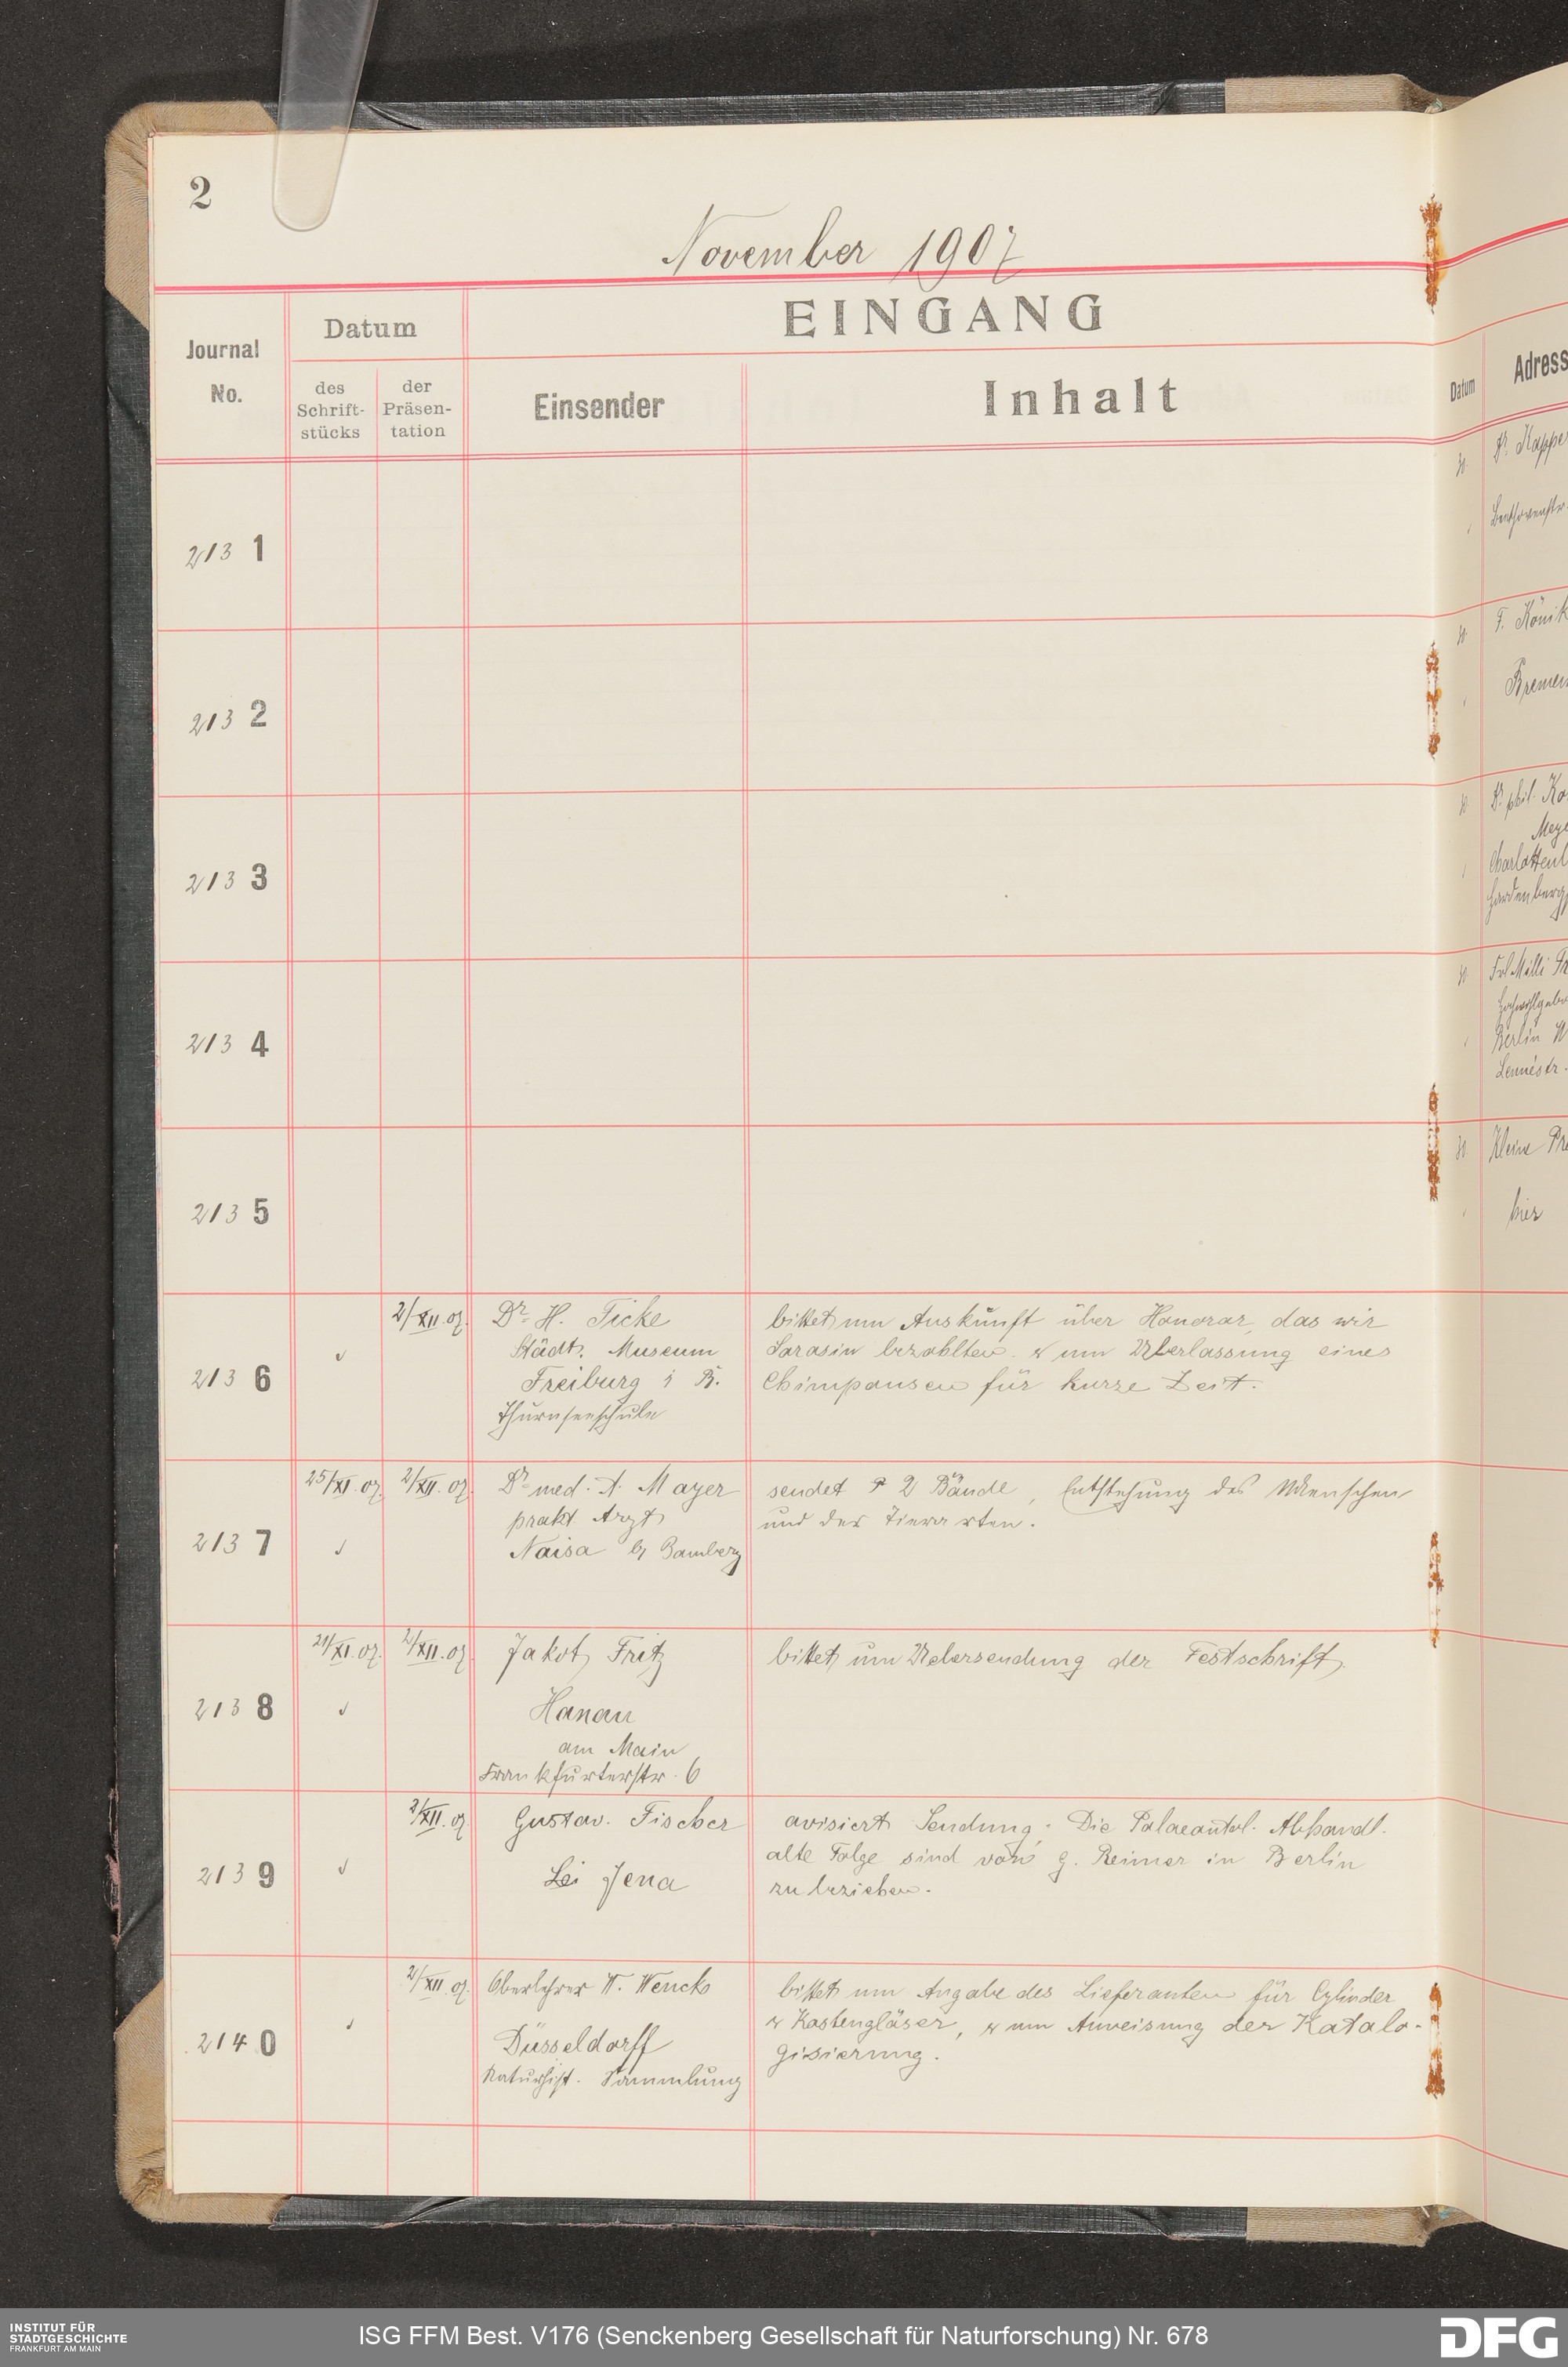 2
November 1907
EINGANG
Datum
Journal
No.
des
Schrift-
stücks
der
Präsen-
tation
Einsender
Inhalt
Datum
Adress
213 1
Dr. Kappe
Beethovenstr.
213 2
F. König
Bremen
213 3
Dr. phil. Ko
Meye
Charlottenb
Hardenberg
213 4
Frl Milli Fr
Hochwohlgeb
Berlin W
Lennéstr.
213 5
Kleine Pre
hier
213 6
2/XII.07.
Dr. H. Ficke
Städt. Museum
Freiburg i B.
Thurnseeschule
bittet um Auskunft über Honorar, das wir
Sarasin bezahlten. & um Überlassung eines
Chimpansen für kurze Zeit.
213 7
25/XI.07.
2/XII.07.
Dr. med. A. Mayer
prakt. Arzt
Naisa b/ Bamberg
sendet 2 Bände, Entstehung des Menschen
und der Tierarten.
213 8
21/XI.07.
2/XII.07.
Jakob Fritz
Hanau
am Main
Frankfurterstr. 6
bittet um Uebersendung der Festschrift.
213 9
2/XII.07.
Gustav. Fischer
Jena
avisiert Sendung; Die Palaeontol. Abhandl.
alte Folge sind von G. Reimer in Berlin
zu beziehen.
214 0
2/XII.07.
Oberlehrer W. Wencke
Düsseldorff
Naturhist. Sammlung
bittet um Angabe des Lieferanten für Cylinder
& Kastengläser, & um Anweisung der Katalo-
gisierung.
INSTITUT FÜR
STADTGESCHICHTE
FRANKFURT AM MAIN
ISG FFM Best. V176 (Senckenberg Gesellschaft für Naturforschung) Nr. 678
DFG